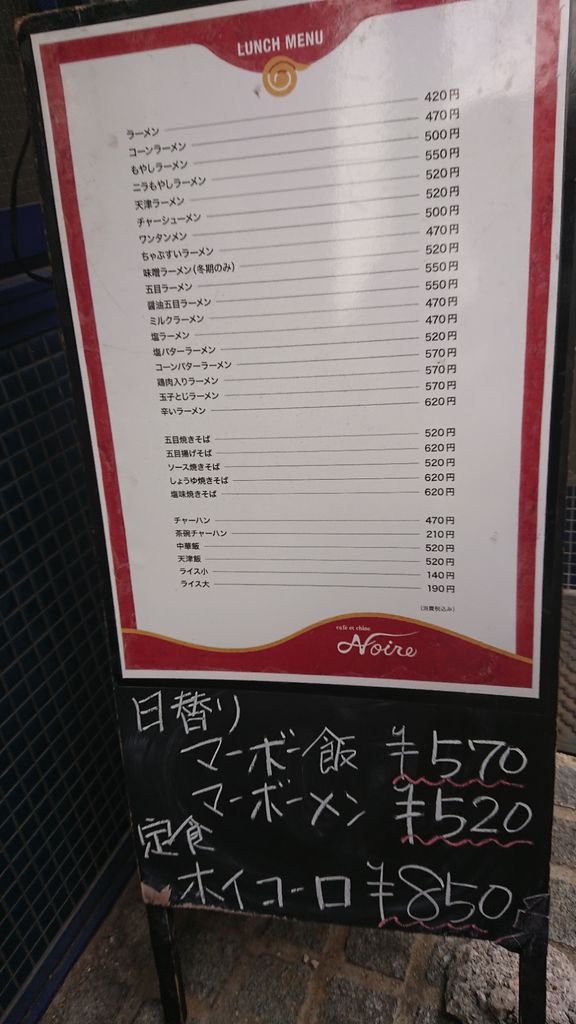 LUNCH MENU
ラーメン 420円
コーンラーメン 470円
もやしラーメン 500円
ニラもやしラーメン 550円
天津ラーメン 520円
チャーシューメン 520円
ワンタンメン 500円
ちゃぶすいラーメン 470円
味噌ラーメン(冬期のみ) 520円
五目ラーメン 550円
醤油五目ラーメン 550円
ミルクラーメン 470円
塩ラーメン 470円
塩バターラーメン 520円
コーンバターラーメン 570円
鶏肉入りラーメン 570円
玉子とじラーメン 570円
辛いラーメン 620円
五目焼きそば 520円
五目揚げそば 620円
ソース焼きそば 520円
しょうゆ焼きそば 620円
塩味焼きそば 620円
チャーハン 470円
茶碗チャーハン 210円
中華飯 520円
天津飯 520円
ライス小 140円
ライス大 190円
(消費税込み)
cafe et chine
Noire
日替り
マーボー飯 ¥570
マーボーメン ¥520
定食
ホイコーロ ¥850